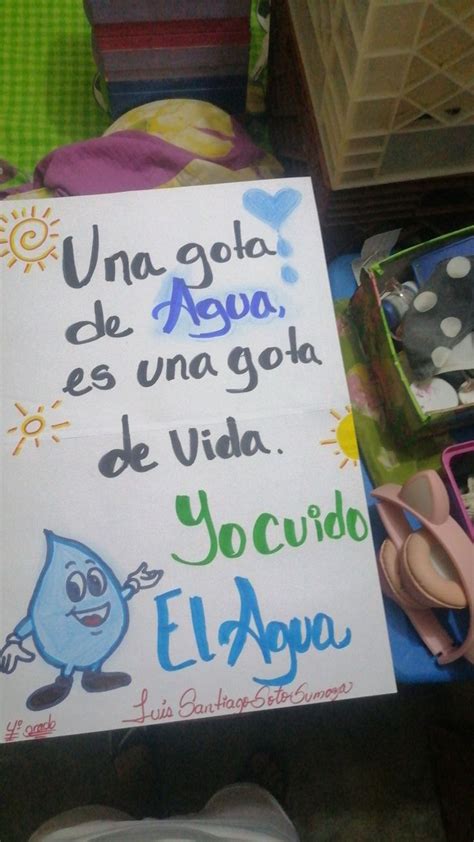 Una gota
de Agua,
es una gota
de Vida.
Yo cuido
El Agua
Luis Santiago Soto Sumoza
4º grado